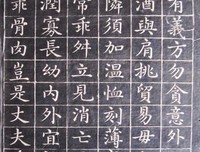 有義方勿貪意外
酒與肩挑貿易毋
隣須加温恤刻薄
常乖舛立見消亡
潤寡長幼内外宜
乖骨肉豈是丈夫